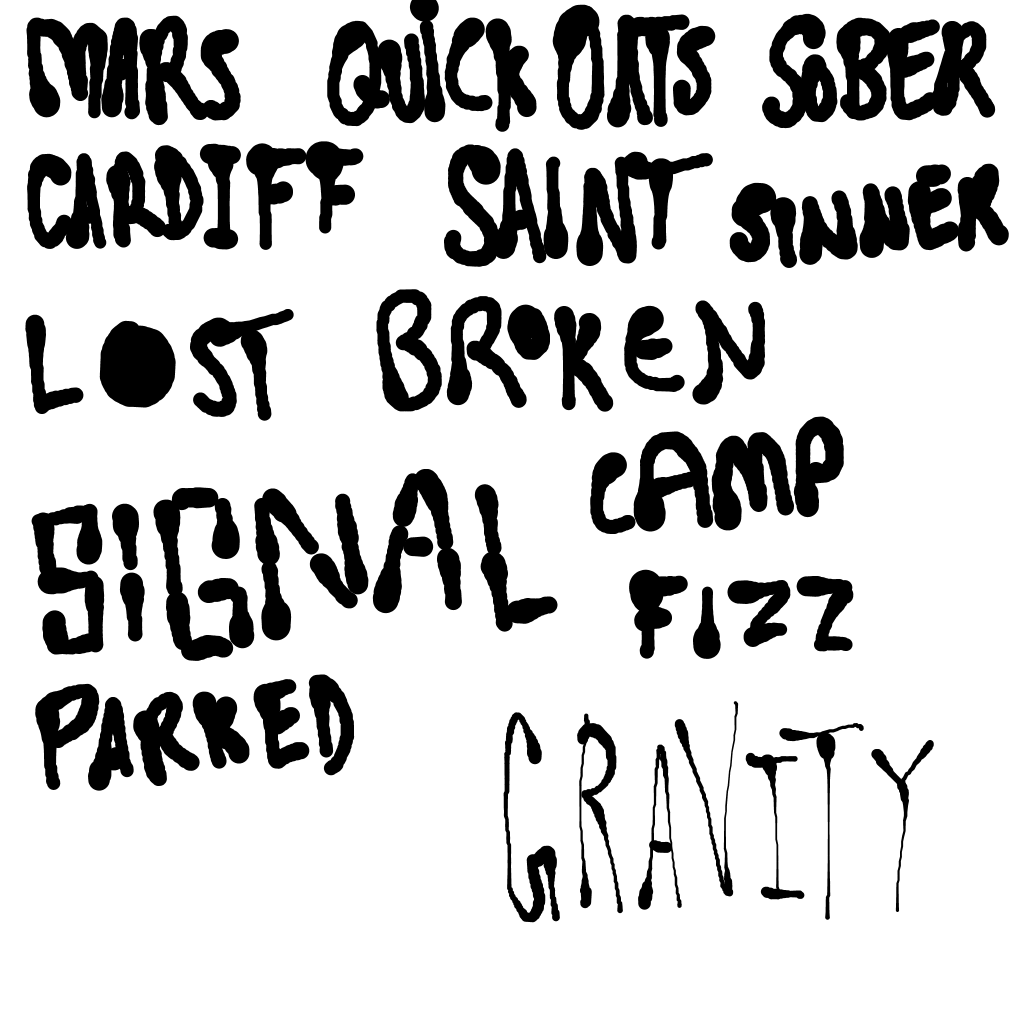 MARS QUiCK OATS SOBER
CARDIFF SAINT SINNER
LOST BROKEN
CAMP
SIGNAL
FIZZ
PARKED
GRAVITY